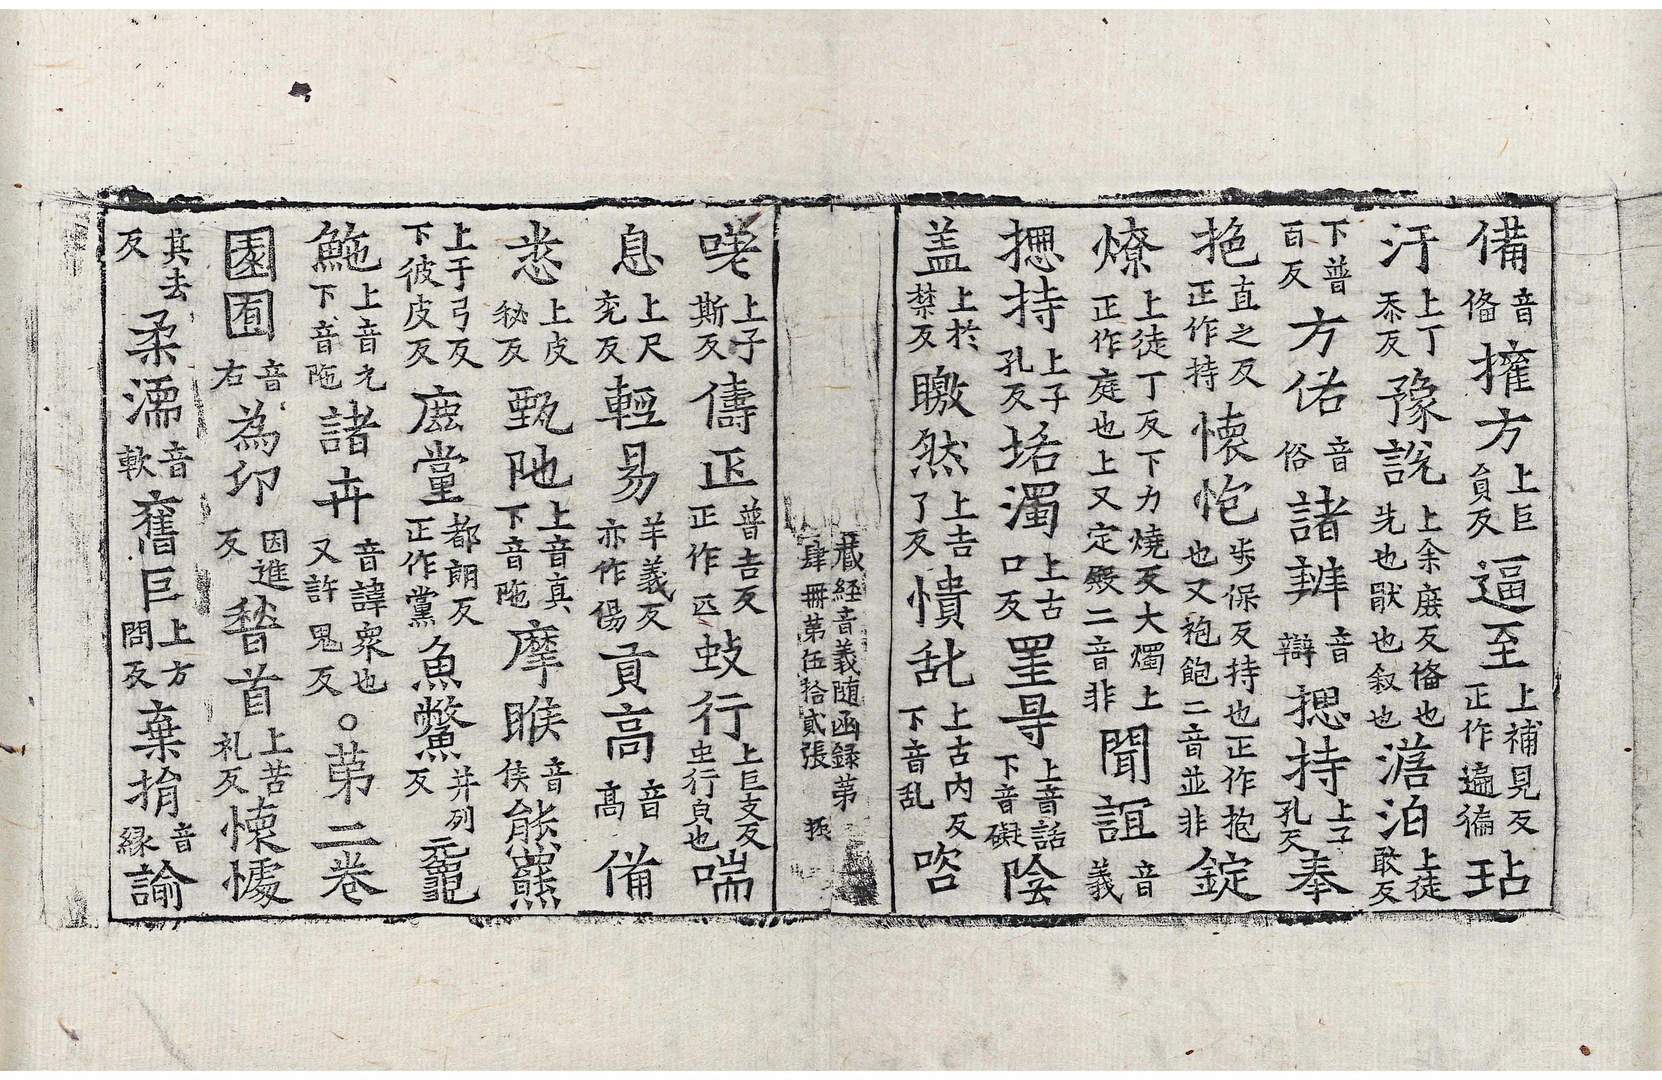 備音俻擁方上巨負反逼至上補見反正作遍徧玷
汙上丁忝反豫說上余㢝反俻也先也猒也叙也澹泊上徒敢反
下普百反方俗音俗諸辦音辯摠持上子孔反奉
抱直之反正作持懷抱步保反持也正作抱也又袍飽二音並非錠
燎上徒丁反下力燒反大燭上正作庭也上又定殿二音非聞誼音義
摠持上子孔反垢濁上古口反罣㝵上音話下音礙陰
盖上於禁反曒然上吉了反憒乱上古內反下音乱㗁
藏経音義随函録第肆 冊第伍拾貳張
嗟上子斯反儔匹普吉反正作匹蚑行上巨支反虫行皃也喘
息上尺兖反輕易羊義反亦作傷貢高音髙備
悉上皮秘反甄陁上音真下音陁摩睺音侯熊羆
上于弓反下彼皮反麄黨都朗反正作黨魚鱉并列反黿
鮀上音元下音陁諸卉音諱衆也又許鬼反〇苐二卷
園囿音右為印因進反稽首上苦礼反懷懅
其去反柔濡音軟奮巨上方問反棄捐音縁諭